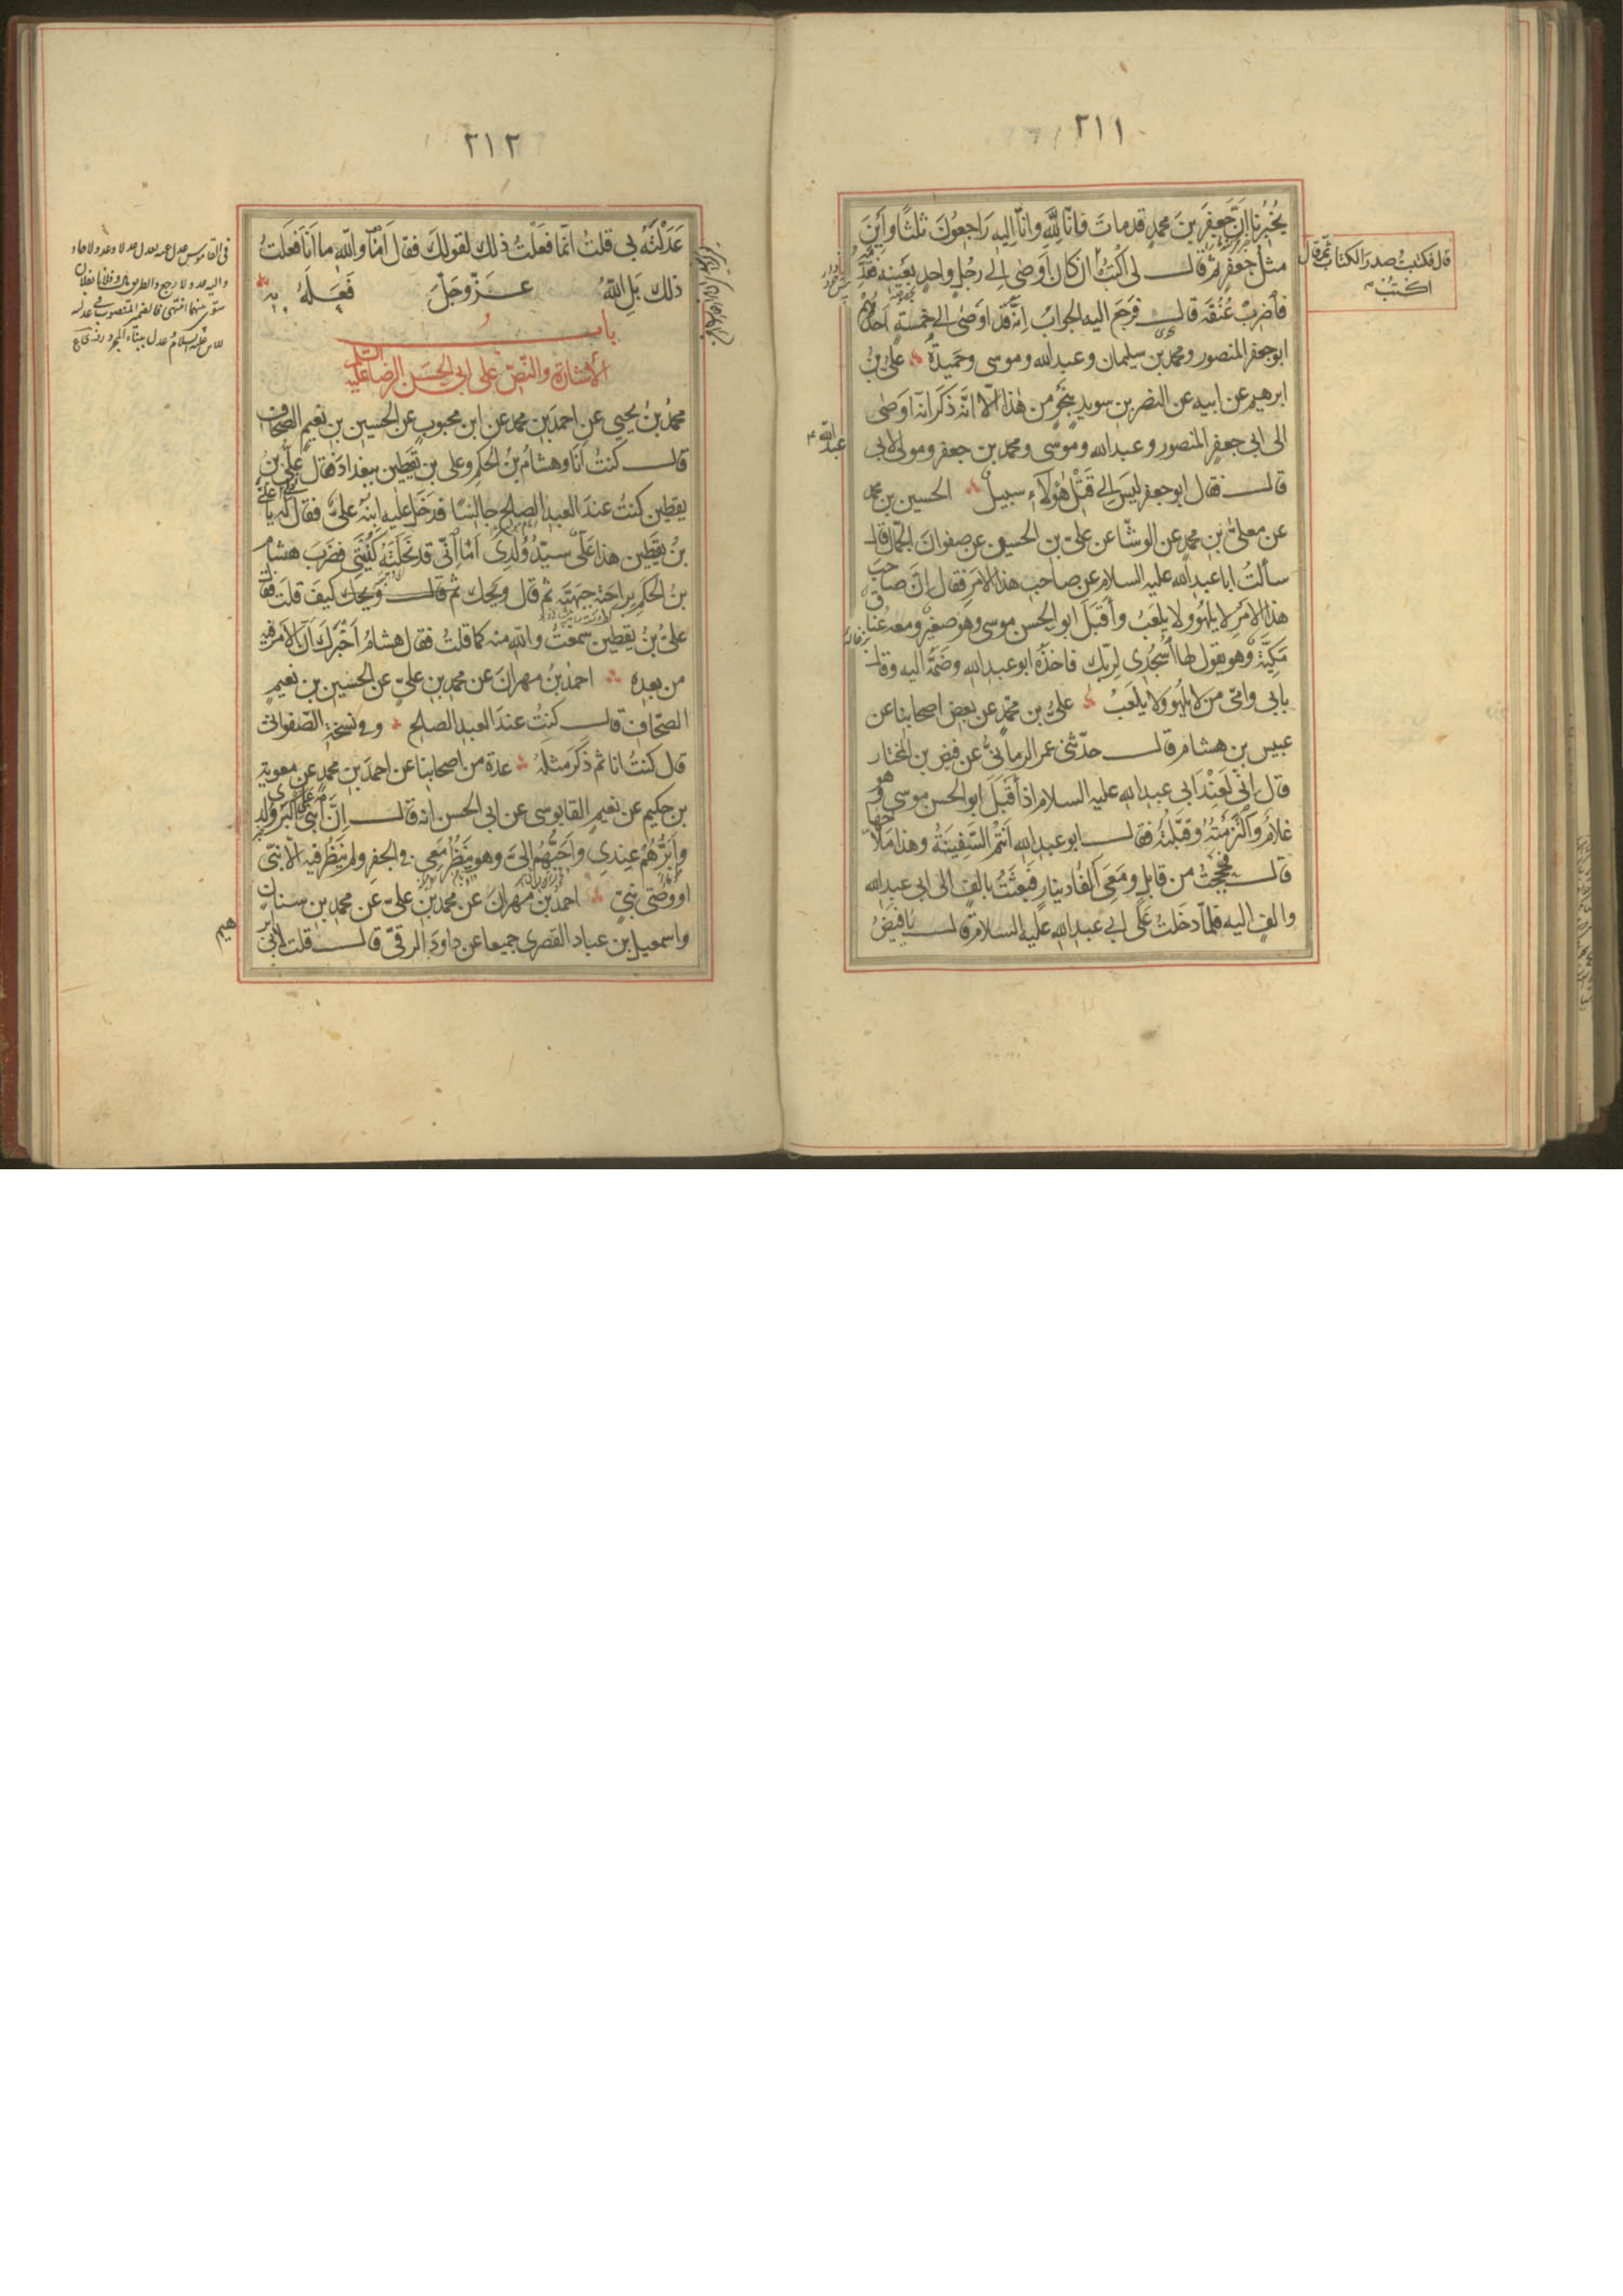 ٢١١
يُخْبِرُنا انّ جَعفَرَ بنَ محمدٍ قدمات فانّا لِلّهِ وانّا اِليه رَاجعُونَ ثلثًا واَينَ
مثلُ جَعفَرٍ ثم قال لى اكتُبْ ان كان اَوصٰى الى رجُلٍ واحدٍ بعَينه فقدِّمْهُ
فاضْرِبْ عُنُقَه قال فرَجَع اليه الجوابُ اِنّه قد اَوصٰى الى خمسةٍ احَدُهُم
ابوجعفر المنصور ومحمدُ بن سليمان وعبدالله وموسى وحَميدةُ علىُّ بنُ
ابرهيم عن ابيه عن النضر بن سويد بنَحْوٍ من هٰذا الّا انّه ذَكَر انّه اوصٰى
الى ابى جعفرٍ المنصور وعبدالله وموسى ومحمد بن جعفر ومولى لابى
عبدالله ع
قال فقال ابوجعفر ليسَ الى قَتْلِ هٰؤلآءِ سبيلٌ الحسين بن محمد
عن معلى بن محمدٍ عن الوشّا عن على بن الحسين عن صفوان الجمّال قال
سألتُ اباعبدالله عليه السلام عن صاحب هذا الامر فقال اِنّ صاحبَ
هذا الاَمْرِ لا يلهُو ولا يلعَبُ وأَقبَلَ ابوالحسن موسى وهو صغيرٌ ومعه عَناقٌ
مَكيّةٌ وهو يقول لها اُسْجُدِى لِربّكِ فاخذَه ابوعبدالله وضَمَّه اليه وقال
بابى وامّى من لا يلهُو ولا يلعَبْ علىُّ بن محمّدٍ عن بعض اصحابنا عن
عبيس بن هشام قال حدّثنى عمر الرمانىُّ عن فيض بن المختار
قال اِنّى لَعِنْدَ ابى عبدالله عليه السلام اذ أَقبَلَ ابوالحسن موسى وهو
غلامٌ وَالْتَزمْتُهُ وقَبّلتُه فقال ابوعبدالله اَنتُمُ السّفينَةُ وهذا مَلّاحُها
قال فحَجَجتُ من قابلٍ ومَعِى اَلْفا دينارٍ فَبعَثتُ بالفٍ الى ابى عبدالله
والفٍ اليه فلمّا دخَلتُ عَلى ابى عبدالله عليه السلام قال يافَيضُ
قال فكتبتُ صدرَ الكتاب ثمّ قال
اكتُبْ
٢١٢
عَدَلْتَهُ بى قلتُ انّما فعَلْتُ ذلك لقولكَ فقال اَمَا واللّه ما اَنَا فعَلتُ
ذلك بَلِ اللّهُ عَزّوجَلّ فَعَلَهُ به
باب
الاشارة والنصّ على ابى الحسَن الرضا عليه السّلم
محمّدُ بنُ يحيى عن احمدَ بنِ محمد عن ابن محبوبٍ عن الحسين بن نعيمٍ الصّحاف
قال كنتُ اَنا وهشامُ بنُ الحكم وعلى بن يقطين ببغدادَ فقال علىُّ بنُ
يقطين كنتُ عندَ العبد الصّالحِ جالسًا فدخَلَ عليه ابنُه علىٌّ فقال لى يا علىَّ
بنَ يقطين هذا عَلىٌّ سيّدُ وُلدِى اَمَا اِنّى قد نَحَلتُه كُنْيَتى فضَرَبَ هشامُ
بنُ الحكم براحَتِه جبهَتَه ثم قال ويحَك ثم قال ويحك كيفَ قلتَ فقال
علىُّ بنُ يقطين سمعتُ واللّهِ منه كما قلتُ فقال هشامٌ اَخبَرَك اَنّ الاَمرَ فيه
من بعده احمدُ بنُ مهران عن محمد بن علىٍّ عن الحسين بن نعيمٍ
الصّحاف قال كنتُ عندَ العبد الصالح وفى نسخةِ الصّفوانى
قال كنتُ انا ثم ذكَرَ مثلَهُ عدة من اصحابنا عن احمدَ بن محمدٍ عن معوية
بن حكيم عن نعيمٍ القابوسى عن ابى الحسن انه قال اِنّ ابنى عليًّا اَكبَرُ ولدى
واَبَرُّهُم عندى واَحَبُّهُم الىّ وهو يَنظُرُ مَعى فى الجفر ولم يَنظُر فيه الّا نبىٌّ
اووصىّ نبىٍّ احمدُ بن مهران عن محمّد بن علىّ عن محمد بن سنان
واسمعيل بن عباد القصرى جميعا عن داودَ الرقىّ قال قلت لابى ابرهيم